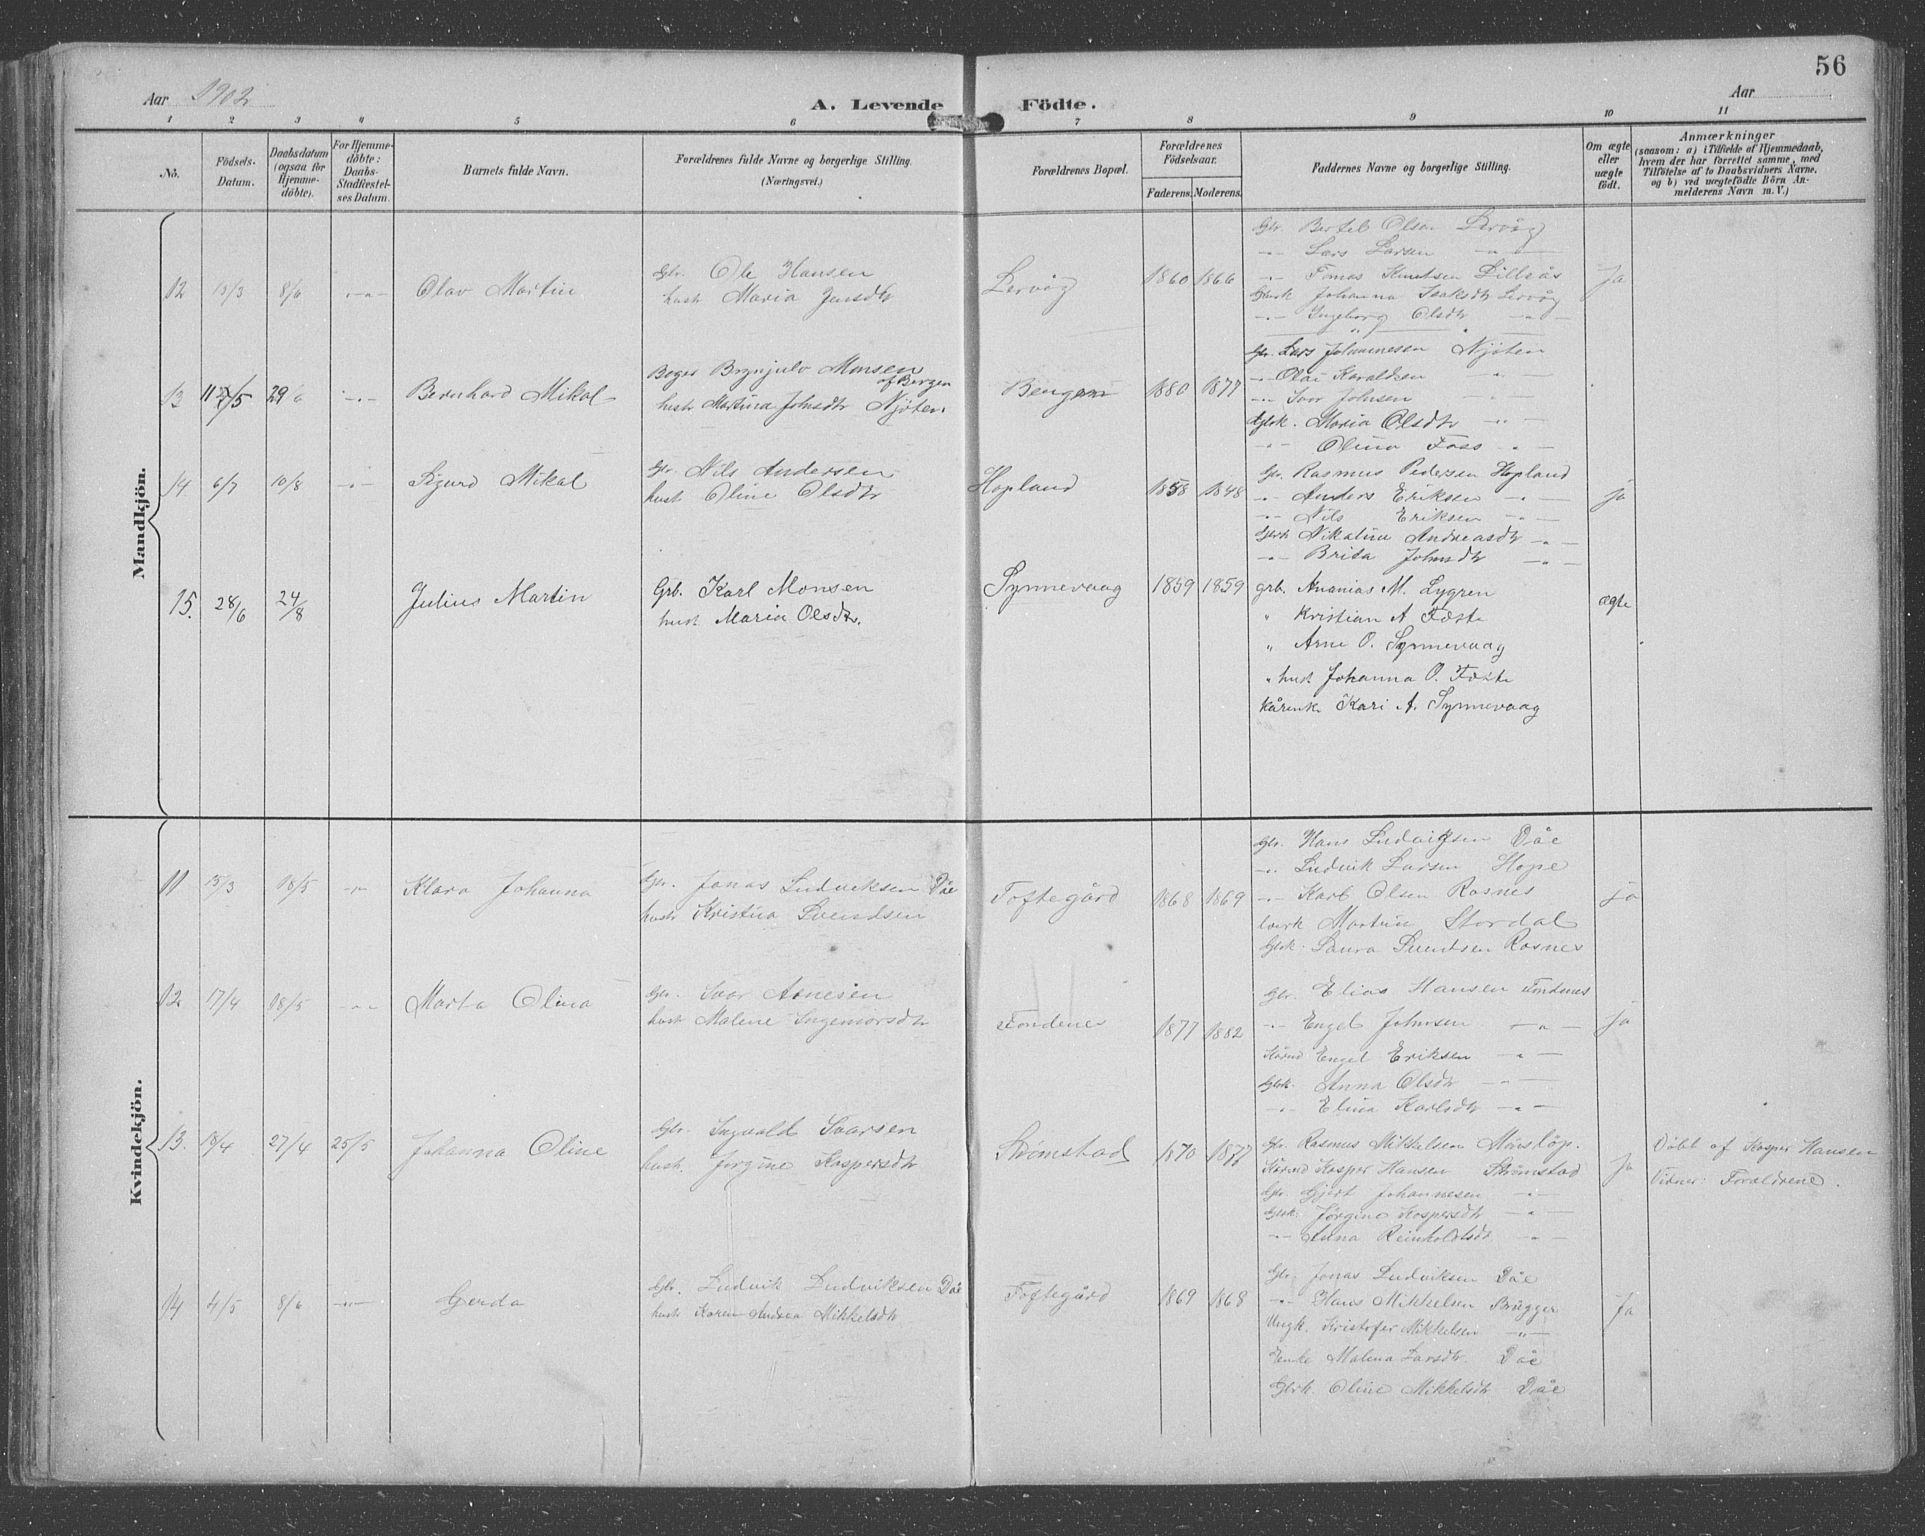 56
Aar 1902
A. Levende Födte.
Aar
1 2 3 4 5 6 7 8 9 10 11
No.
Födsels-Datum.
Daabsdatum (ogsaa for Hjemmedöbte).
For Hjemmedöbte: Daabs-Stadfæstelses Datum.
Barnets fulde Navn.
Forældrenes fulde Navne og borgerlige Stilling.
(Næringsvei.)
Forældrenes Bopæl.
Forældrenes Födselsaar.
Faderens. Moderens.
Faddernes Navne og borgerlige Stilling.
Om ægte eller uægte födt.
Anmærkninger
(saasom: a) i Tilfælde af Hjemmedaab,
hvem der har forrettet samme, med
Tilföielse af to Daabsvidners Navne,
og b) ved uægtefödte Börn An-
melderens Navn m. V.)
Mandkjön.
12 8/6 Olav Martin
Gbr. Ole Hansen
hust Maria Jensdtr
Lervåg 1860 1866 Ja
Gbr. Bertel Olsen Lervåg
-"- Lars Larsen -"-
-"- Tomas Knutsen Lillås
Gbrk Johanna Isaksdtr Lervåg
-"- Ingeborg Olsdtr -"-
13 29/6 -"- Bernhard Mikal
Bager Brynjulv Monsen
af Bergen
hustr Martina Johnsdtr Njøten.
Bergen 1880 1877
Gbr. Lars Johannesen Njøten
-"- Olai Karaldsen -"-
-"- Ivar Johnsen -"-
Gbrk. Maria Olsdtr -"-
-"- Olina Foss -"-
14 6/7 10/8 -"- Sigurd Mikal
Gbr. Nils Andersen
hust Oline Olsdtr
Hopland 1858 1848 ja
Gbr. Rasmus Pedersen Hopland
-"- Anders Eriksen -"-
-"- Nils Eriksen -"-
Gbrk Nikaline Andreasdtr -"-
-"- Brita Johnsdtr -"-
15. 28/6 24/8 Julius Martin
Grb. Karl Monsen
hust Maria Olsdtr.
Synnevaag 1859 1859 ægte
grb. Ananias M. Lygren
" Kristian A Fæste
" Arne O. Synnevaag
" hust Johanna O. Fæste
Kårenke Kari A. Synnevaag
Kvindekjön.
11 15/3 18/5 -"- Klara Johanna
Gbr. Jonas Ludviksen Dåe
hustr Kristina Svendsen
Toftegård 1868 1869 ja
Gbr. Hans Ludvigsen Dåe
-"- Ludvik Larsen Hope
-"- Karl Olsen Rosnes
Martin Stordal
Gbrk. Laura Svendsen Rosnes
12. 17/4 18/5 -"- Marta Olina
Gbr. Ivar Arnesen
hust Malene Ingemorsdtr
Fondenes 1877 1882 ja
Gbr. Elias Hansen Fondenes
-"- Engel Johnsen -"-
Kårmd Engel Eriksen -"-
Gbrk. Anna Olsdtr -"-
-"- Elina Karlsdtr -"-
13. 18/4 27/4 25/5 Johanna Oline
Gbr. Ingvald Ivarsen
hust. Jorgine Kaspersdtr
Strømstad 1870 1877 Ja
Gbr. Rasmus Mikkelsen
Kårmd Kasper Hansen Strømstad
Gbr. Gjert Johannesen -"-
Gbrk. Jørgine Kaspersdtr -"-
-"- Anna Reinholdtsdtr -"-
Döbt af Kasper Hansen
Vidner: Forældrene.
14 4/5 8/6 -"- Gerda
Gbr. Ludvik Ludviksen Dåe
hust Karen Andrea Mikkelsdtr
Toftegård 1869 1868 Ja
Gbr. Jonas Ludviksen Dåe
-"- Hans Mikkelsen Brügger
Ungk. Kristofer Mikkelsen -"-
Enke Malena Larsdtr. Dåe
Gbrk. Oline Mikkelsdtr Dåe